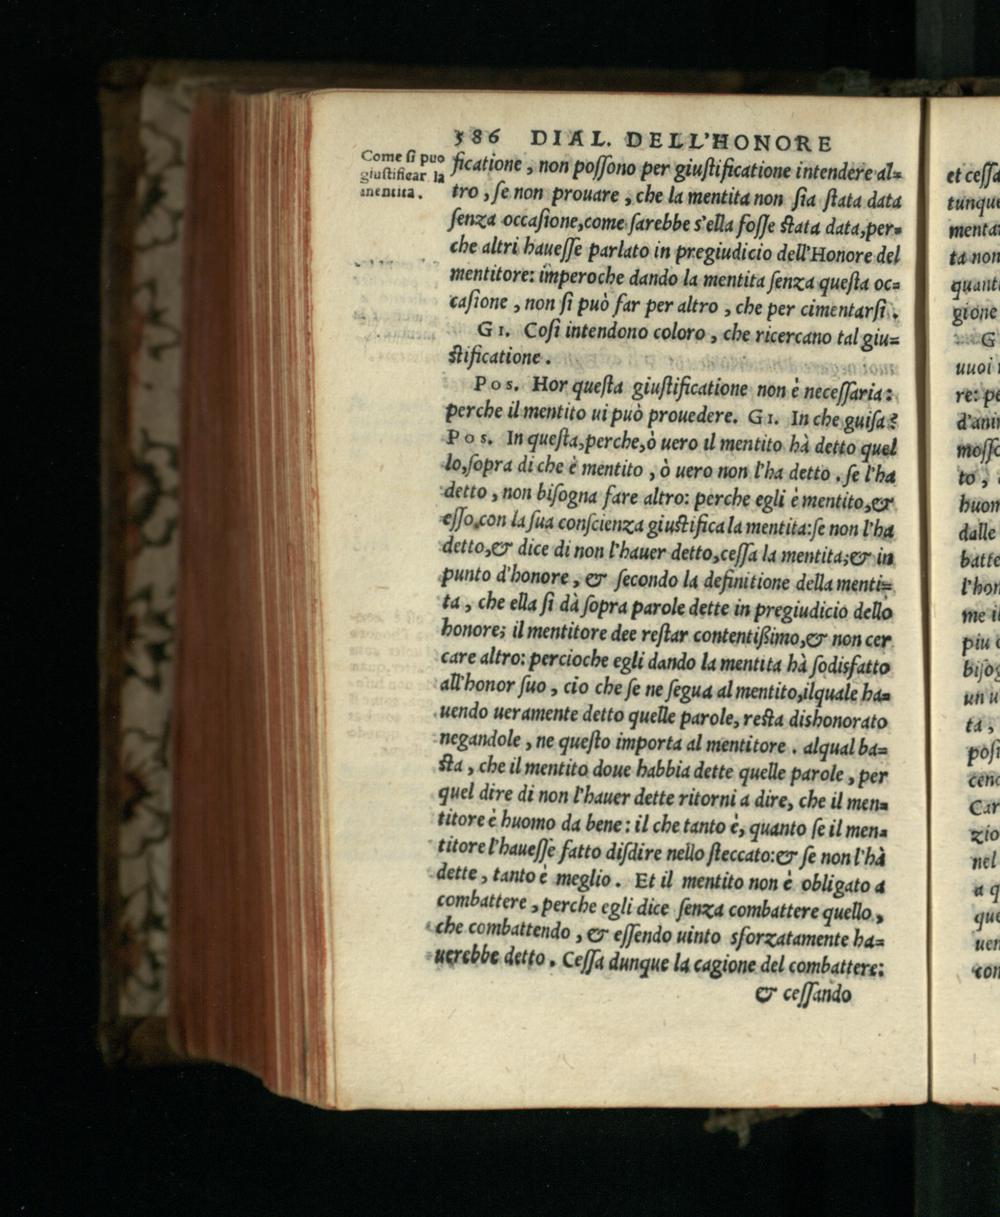 386 DIAL. DELL'HONORE
Come ſi puo
giuſtificar la
mentita.
ficatione, non poſſono per giuſtificatione intendere al=
tro, ſe non prouare, che la mentita non ſia ſtata data
ſenza occaſione, come ſarebbe s'ella foſſe ſtata data, per=
che altri haueſſe parlato in pregiudicio dell'Honore del
mentitore: imperoche dando la mentita ſenza queſta oc=
caſione, non ſi può far per altro, che per cimentarſi.
GI. Coſi intendono coloro, che ricercano tal giu=
ſtificatione.
Pos. Hor queſta giuſtificatione non è neceſſaria:
perche il mentito ui può prouedere. GI. In che guiſa?
Pos. In queſta, perche, ò uero il mentito hà detto quel
lo, ſopra di che è mentito, ò uero non l'ha detto. ſe l'ha
detto, non biſogna fare altro: perche egli è mentito, &
eſſo con la ſua conſcienza giuſtifica la mentita: ſe non l'ha
detto, & dice di non l'hauer detto, ceſſa la mentita; & in
punto d'honore, & ſecondo la definitione della menti=
ta, che ella ſi dà ſopra parole dette in pregiudicio dello
honore; il mentitore dee reſtar contentiſsimo, & non cer
care altro: percioche egli dando la mentita hà ſodisfatto
all'honor ſuo, cio che ſe ne ſegua al mentito, ilquale ha=
uendo ueramente detto quelle parole, reſta dishonorato
negandole, ne queſto importa al mentitore. alqual ba=
ſta, che il mentito doue habbia dette quelle parole, per
quel dire di non l'hauer dette ritorni a dire, che il men=
titore è huomo da bene: il che tanto è, quanto ſe il men=
titore l'haueſſe fatto diſdire nello ſteccato: & ſe non l'hà
dette, tanto è meglio. Et il mentito non è obligato a
combattere, perche egli dice ſenza combattere quello,
che combattendo, & eſſendo uinto sforzatamente ha=
uerebbe detto. Ceſſa dunque la cagione del combattere:
& ceſſando
et ceſſa
tunque
mentat
ta non
quant
gione
G
uuoi
re: pe
d'ani
moſſo
to,
huom
dalle
batte
l'hon
me i
piu
biſog
un u
ta,
poſi
cend
Car
zio
nel
a q
que
uen
con